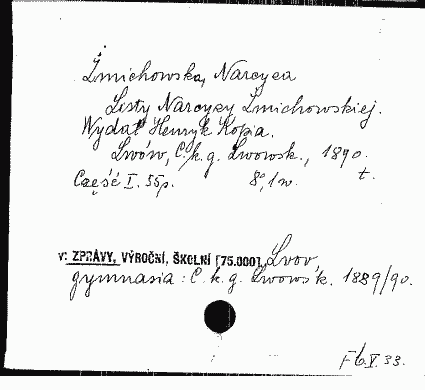 Żmichowska, Narcyza
Listy Narcyzy Żmichowskiej.
Wydał Henryk Kopia.
Lwów, C.k.g. Lwowsk., 1890.
Część I. 55p. 8°, 1w. t.
v: ZPRÁVY, VÝROČNÍ, ŠKOLNÍ [75.000], Lvov,
gymnasia: C.k.g. Lwowsk. 1889/90.
V.33.